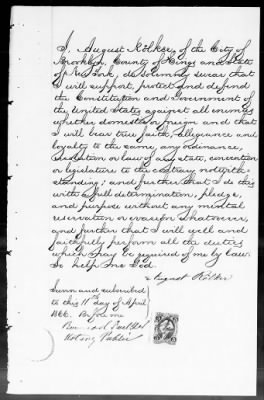 I, August Kölker, of the City of
Brooklyn, County of Kings and State
of New York, do solemnly swear that
I will support, protect and defend
the Constitution and Government of
the United States against all enemies
whether domestic or foreign and that
I will bear true faith, allegiance and
loyalty to the same, any ordinance,
resolution or law of any state, convention
or legislature to the contrary notwith-
standing; and further that I do this
with a full determination, pledge,
and purpose without any mental
reservation or evasion whatsoever,
and further that I will well and
faithfully perform all the duties
which may be required of me by law.
So help me God.
August Kölker
Sworn and subscribed
to this 11th day of April
1866. Before me
Notary Public